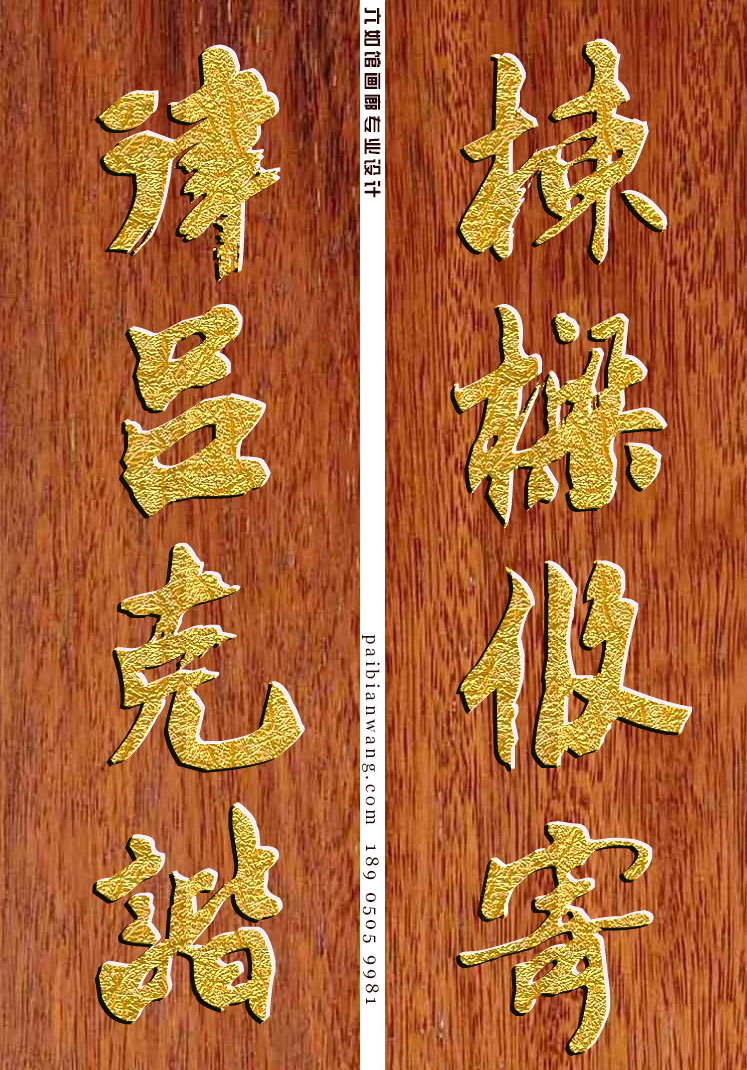 棟樑攸寄
律吕克諧
六如馆画廊专业设计
paibianwang.com 189 0505 9981